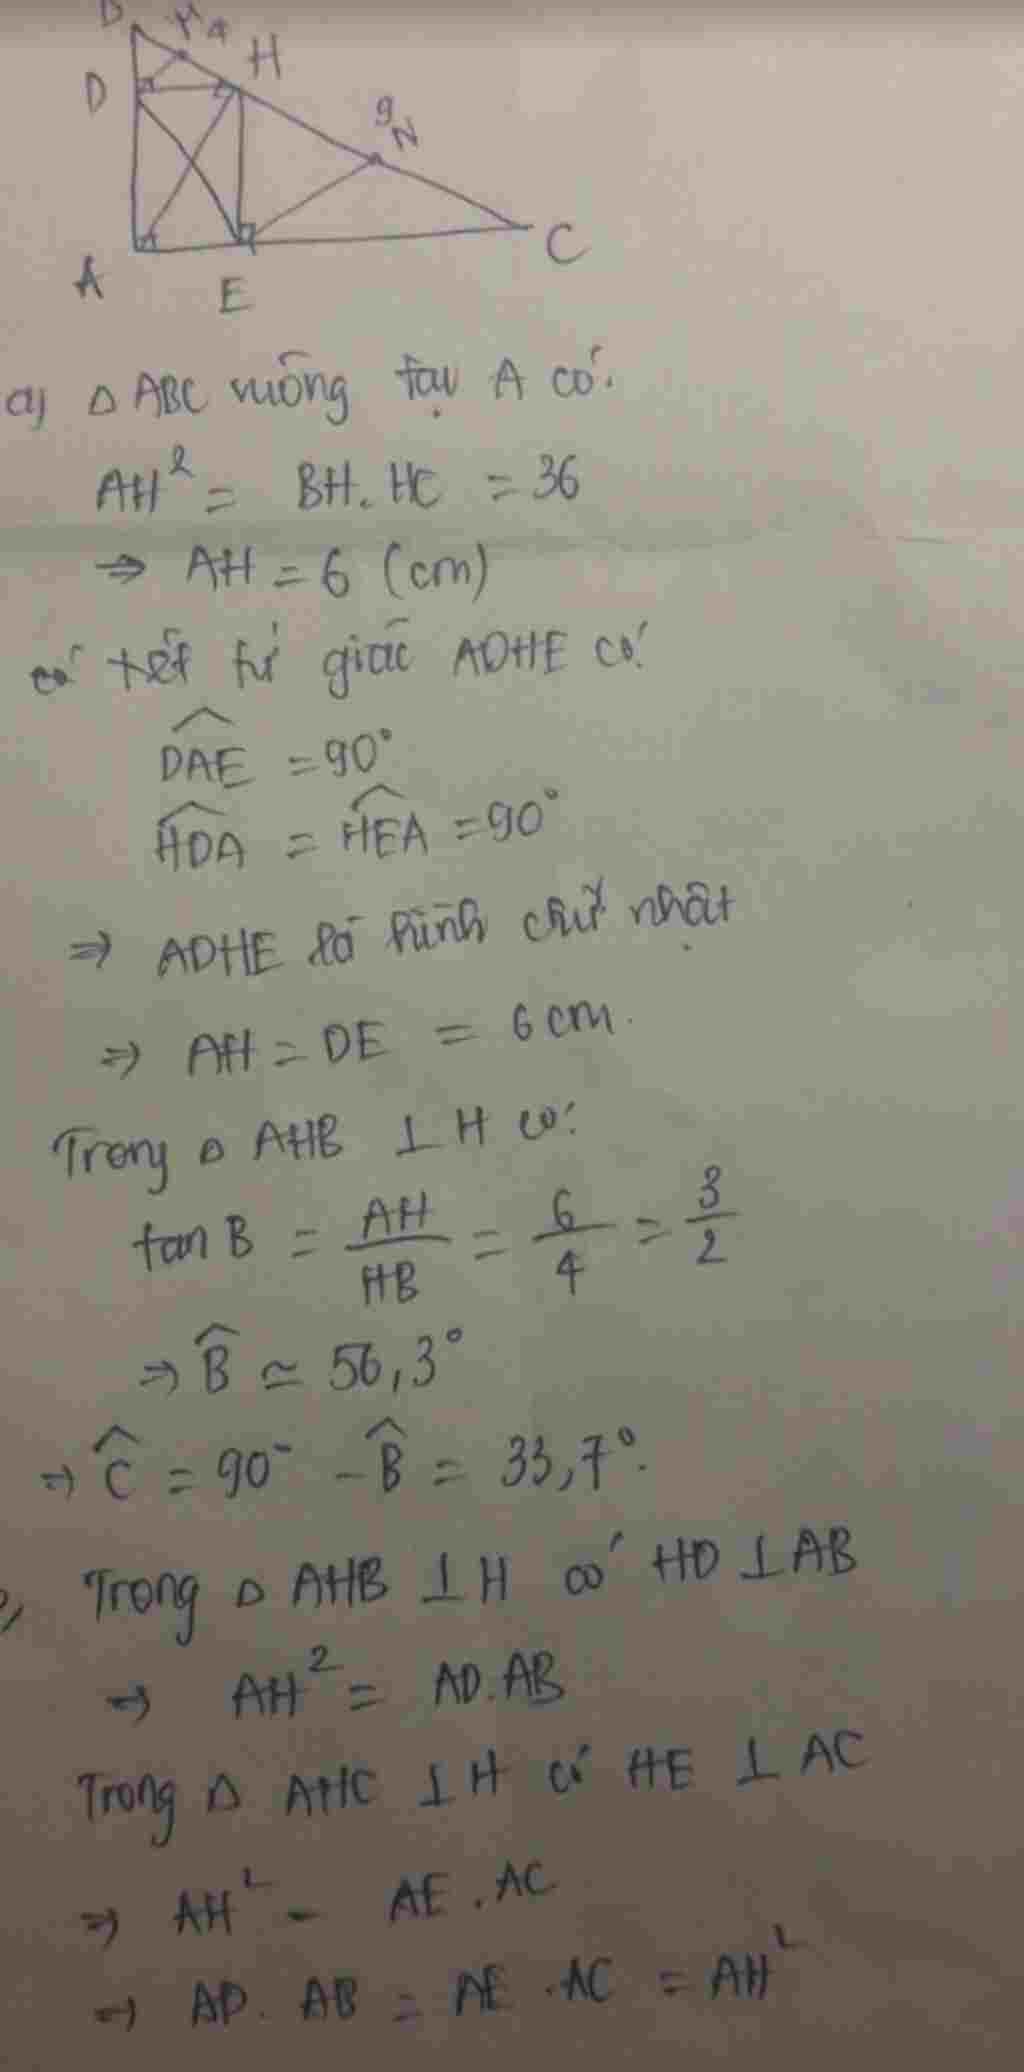 B M 4 H
D
9 N
A E C
a) Δ ABC vuông tại A có:
AH² = BH. HC = 36
⇒ AH = 6 (cm)
tứ giác ADHE có:
DAE = 90°
HDA = HEA = 90°
⇒ ADHE là hình chữ nhật
⇒ AH = DE = 6 cm.
Trong Δ AHB ⊥ H có:
tan B = AH/HB = 6/4 = 3/2
⇒ B ≃ 56,3°
⇒ C = 90° - B = 33,7°.
Trong Δ AHB ⊥ H có HD ⊥ AB
⇒ AH² = AD. AB
Trong Δ AHC ⊥ H có HE ⊥ AC
⇒ AH² = AE . AC
⇒ AD. AB = AE . AC = AH²